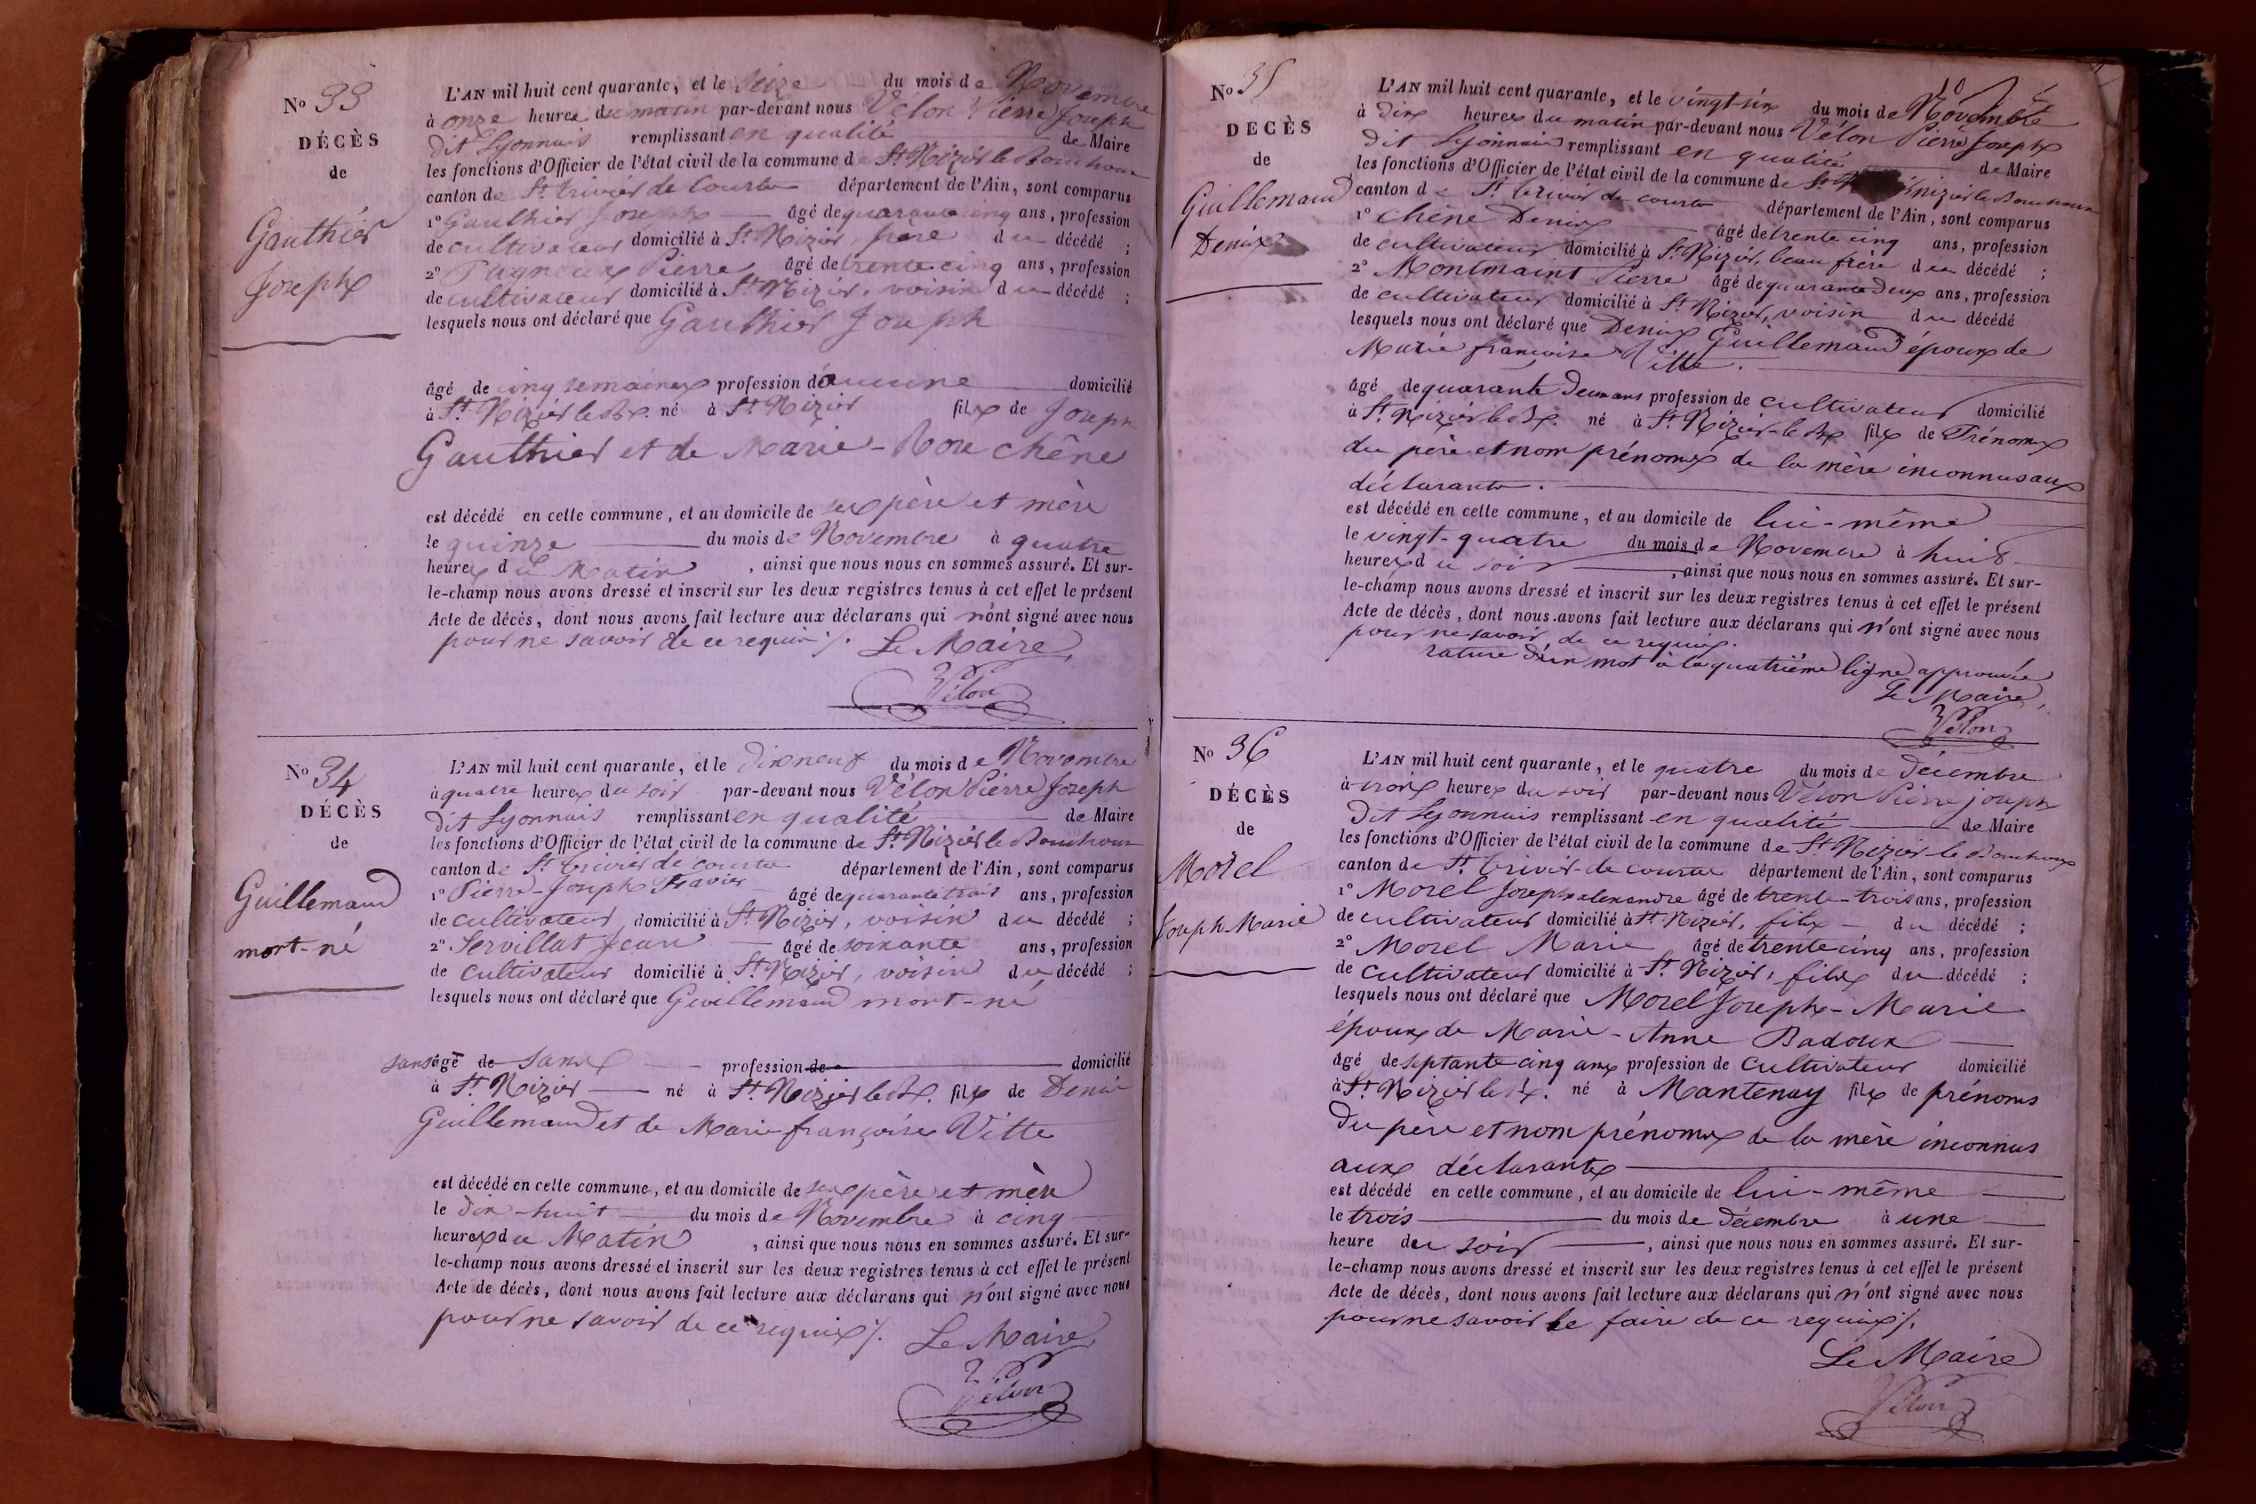 No 33
DÉCÈS
de
Gauthier
Joseph
L'AN mil huit cent quarante, et le Seize du mois de Novembre
à onze heures du matin par-devant nous Vélon Pierre Joseph
dit Lyonnais remplissant en qualité de Maire
les fonctions d'Officier de l'état civil de la commune de St Nizier le Bouchoux
canton de St trivier de Courtes département de l'Ain, sont comparus
1° Gauthier Joseph âgé de quarante cinq ans, profession
de cultivateur domicilié à St Nizier, père du décédé ;
2° Pagneux Pierre âgé de trente cinq ans, profession
de cultivateur domicilié à St Nizier, voisin du décédé ;
lesquels nous ont déclaré que Gauthier Joseph
âgé de cinq semaines profession d'aucune domicilié
à St Nizier le Bx. né à St Nizier fils de Joseph
Gauthier et de Marie-Rose chêne
est décédé en cette commune, et au domicile de ses père et mère
le quinze du mois de Novembre à quatre
heures du Matin, ainsi que nous nous en sommes assuré. Et sur-
le-champ nous avons dressé et inscrit sur les deux registres tenus à cet effet le présent
Acte de décès, dont nous avons fait lecture aux déclarans qui n'ont signé avec nous
pour ne savoir de ce requis ./. Le Maire,
Vélon
No 34
DÉCÈS
de
Guillemaud
mort-né
L'AN mil huit cent quarante, et le Dix neuf du mois de Novembre
à quatre heures du soir par-devant nous Vélon Pierre Joseph
dit Lyonnais remplissant en qualité de Maire
les fonctions d'Officier de l'état civil de la commune de St Nizier le Bouchoux
canton de St trivier de courtes département de l'Ain, sont comparus
1° Pierre-Joseph Fravier âgé de quarante trois ans, profession
de cultivateur, domicilié à St Nizier, voisin du décédé ;
2° Servillat Jean âgé de soixante ans, profession
de cultivateur domicilié à St Nizier, voisin du décédé ;
lesquels nous ont déclaré que Guillemaud mort-né
sans âgé de sans profession de domicilié
à St Nizier né à St Nizier le Bx. fils de Denis
Guillemaud et de Marie françoise Vitte
est décédé en cette commune, et au domicile de ses père et mère
le dix-huit du mois de Novembre à cinq
heures du Matin, ainsi que nous nous en sommes assuré. Et sur-
le-champ nous avons dressé et inscrit sur les deux registres tenus à cet effet le présent
Acte de décès, dont nous avons fait lecture aux déclarans qui n'ont signé avec nous
pour ne savoir de ce requis ./. Le Maire,
Vélon
No 35
DÉCÈS
de
Guillemaud
Denis
L'AN mil huit cent quarante, et le vingt-six du mois de Novembre
à dix heures du matin par-devant nous Vélon Pierre Joseph
dit Lyonnais remplissant en qualité de Maire
les fonctions d'Officier de l'état civil de la commune de St nizier le Bouchoux
canton de St trivier de courtes département de l'Ain, sont comparus
1° chêne Denis âgé de trente cinq ans, profession
de cultivateur domicilié à St Nizier, beau frère du décédé ;
2° Montmaint Pierre âgé de quarante deux ans, profession
de cultivateur domicilié à St Nizier, voisin du décédé
lesquels nous ont déclaré que Denis Guillemaud époux de
Marie françoise Vitte.
âgé de quarante deux ans profession de cultivateur domicilié
à St Nizier le Bx. né à St Nizier-le Bx fils de Prénoms
du père et nom prénoms de la mère inconnus aux
déclarants.
est décédé en cette commune, et au domicile de lui-même
le vingt-quatre du mois de Novembre à huit
heures du soir, ainsi que nous nous en sommes assuré. Et sur-
le-champ nous avons dressé et inscrit sur les deux registres tenus à cet effet le présent
Acte de décès, dont nous avons fait lecture aux déclarans qui n'ont signé avec nous
pour ne savoir de ce requis.
rature d'un mot à la quatrième ligne approuvée
Le Maire,
Vélon
No 36
DÉCÈS
de
Morel
Joseph Marie
L'AN mil huit cent quarante, et le quatre du mois de Décembre
à trois heures du soir par-devant nous Vélon Pierre joseph
Dit Lyonnais remplissant en qualité de Maire
les fonctions d'Officier de l'état civil de la commune de St Nizier-le Bouchoux
canton de St trivier-de courtes département de l'Ain, sont comparus
1° Morel Joseph alexandre âgé de trente-trois ans, profession
de cultivateur domicilié à St Nizier, fils du décédé ;
2° Morel Marie âgé de trente cinq ans, profession
de cultivateur domicilié à St Nizier, fils du décédé ;
lesquels nous ont déclaré que Morel Joseph-Marie
époux de Marie-Anne Badoux
âgé de septante cinq ans profession de cultivateur domicilié
à St Nizier le Bx. né à Mantenay fils de prénoms
du père et nom prénoms de la mère inconnus
aux déclarants
est décédé en cette commune, et au domicile de lui-même
le trois du mois de décembre à une
heure du soir, ainsi que nous nous en sommes assuré. Et sur-
le-champ nous avons dressé et inscrit sur les deux registres tenus à cet effet le présent
Acte de décès, dont nous avons fait lecture aux déclarans qui n'ont signé avec nous
pour ne savoir le faire de ce requis ./.
Le Maire
Vélon